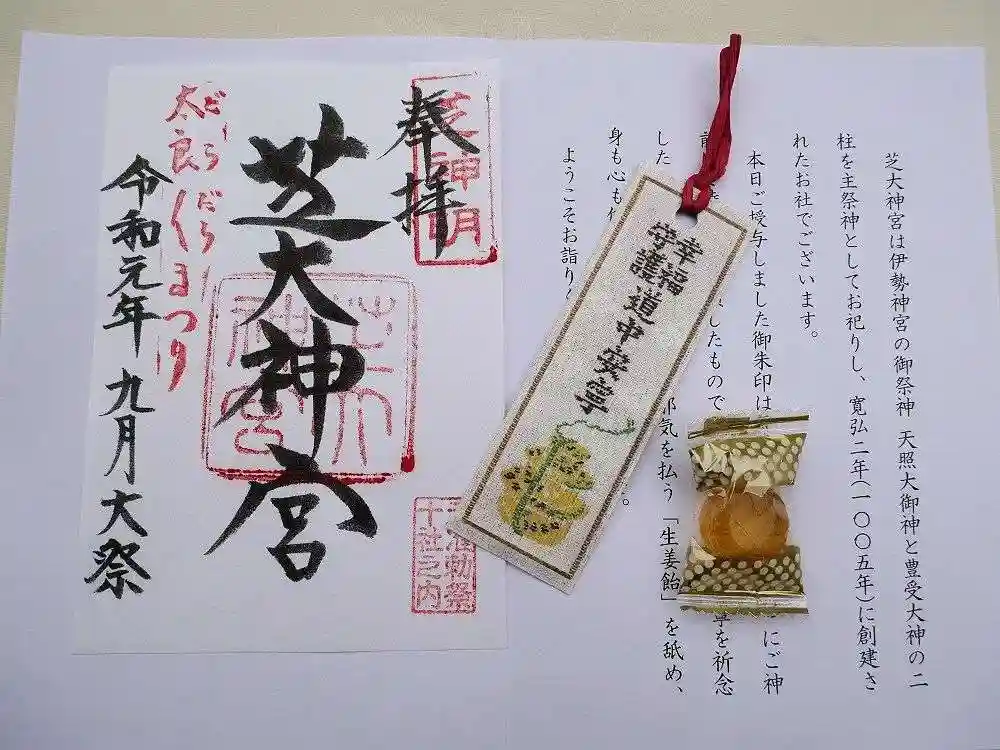 奉拝
芝神明
芝大神宮
だらだら
太良くまつり
令和元年 九月大祭
十社之内
幸福
守護
道中安寧
芝大神宮は伊勢神宮の御祭神 天照大御神と豊受大神の二
柱を主祭神としてお祀りし、寛弘二年(一〇〇五年)に創建さ
れたお社でございます。
本日ご授与しました御朱印は
にご神
前
したもので
寧を祈念
した
邪気を払う「生姜飴」を舐め、
身も心も
ようこそお詣り